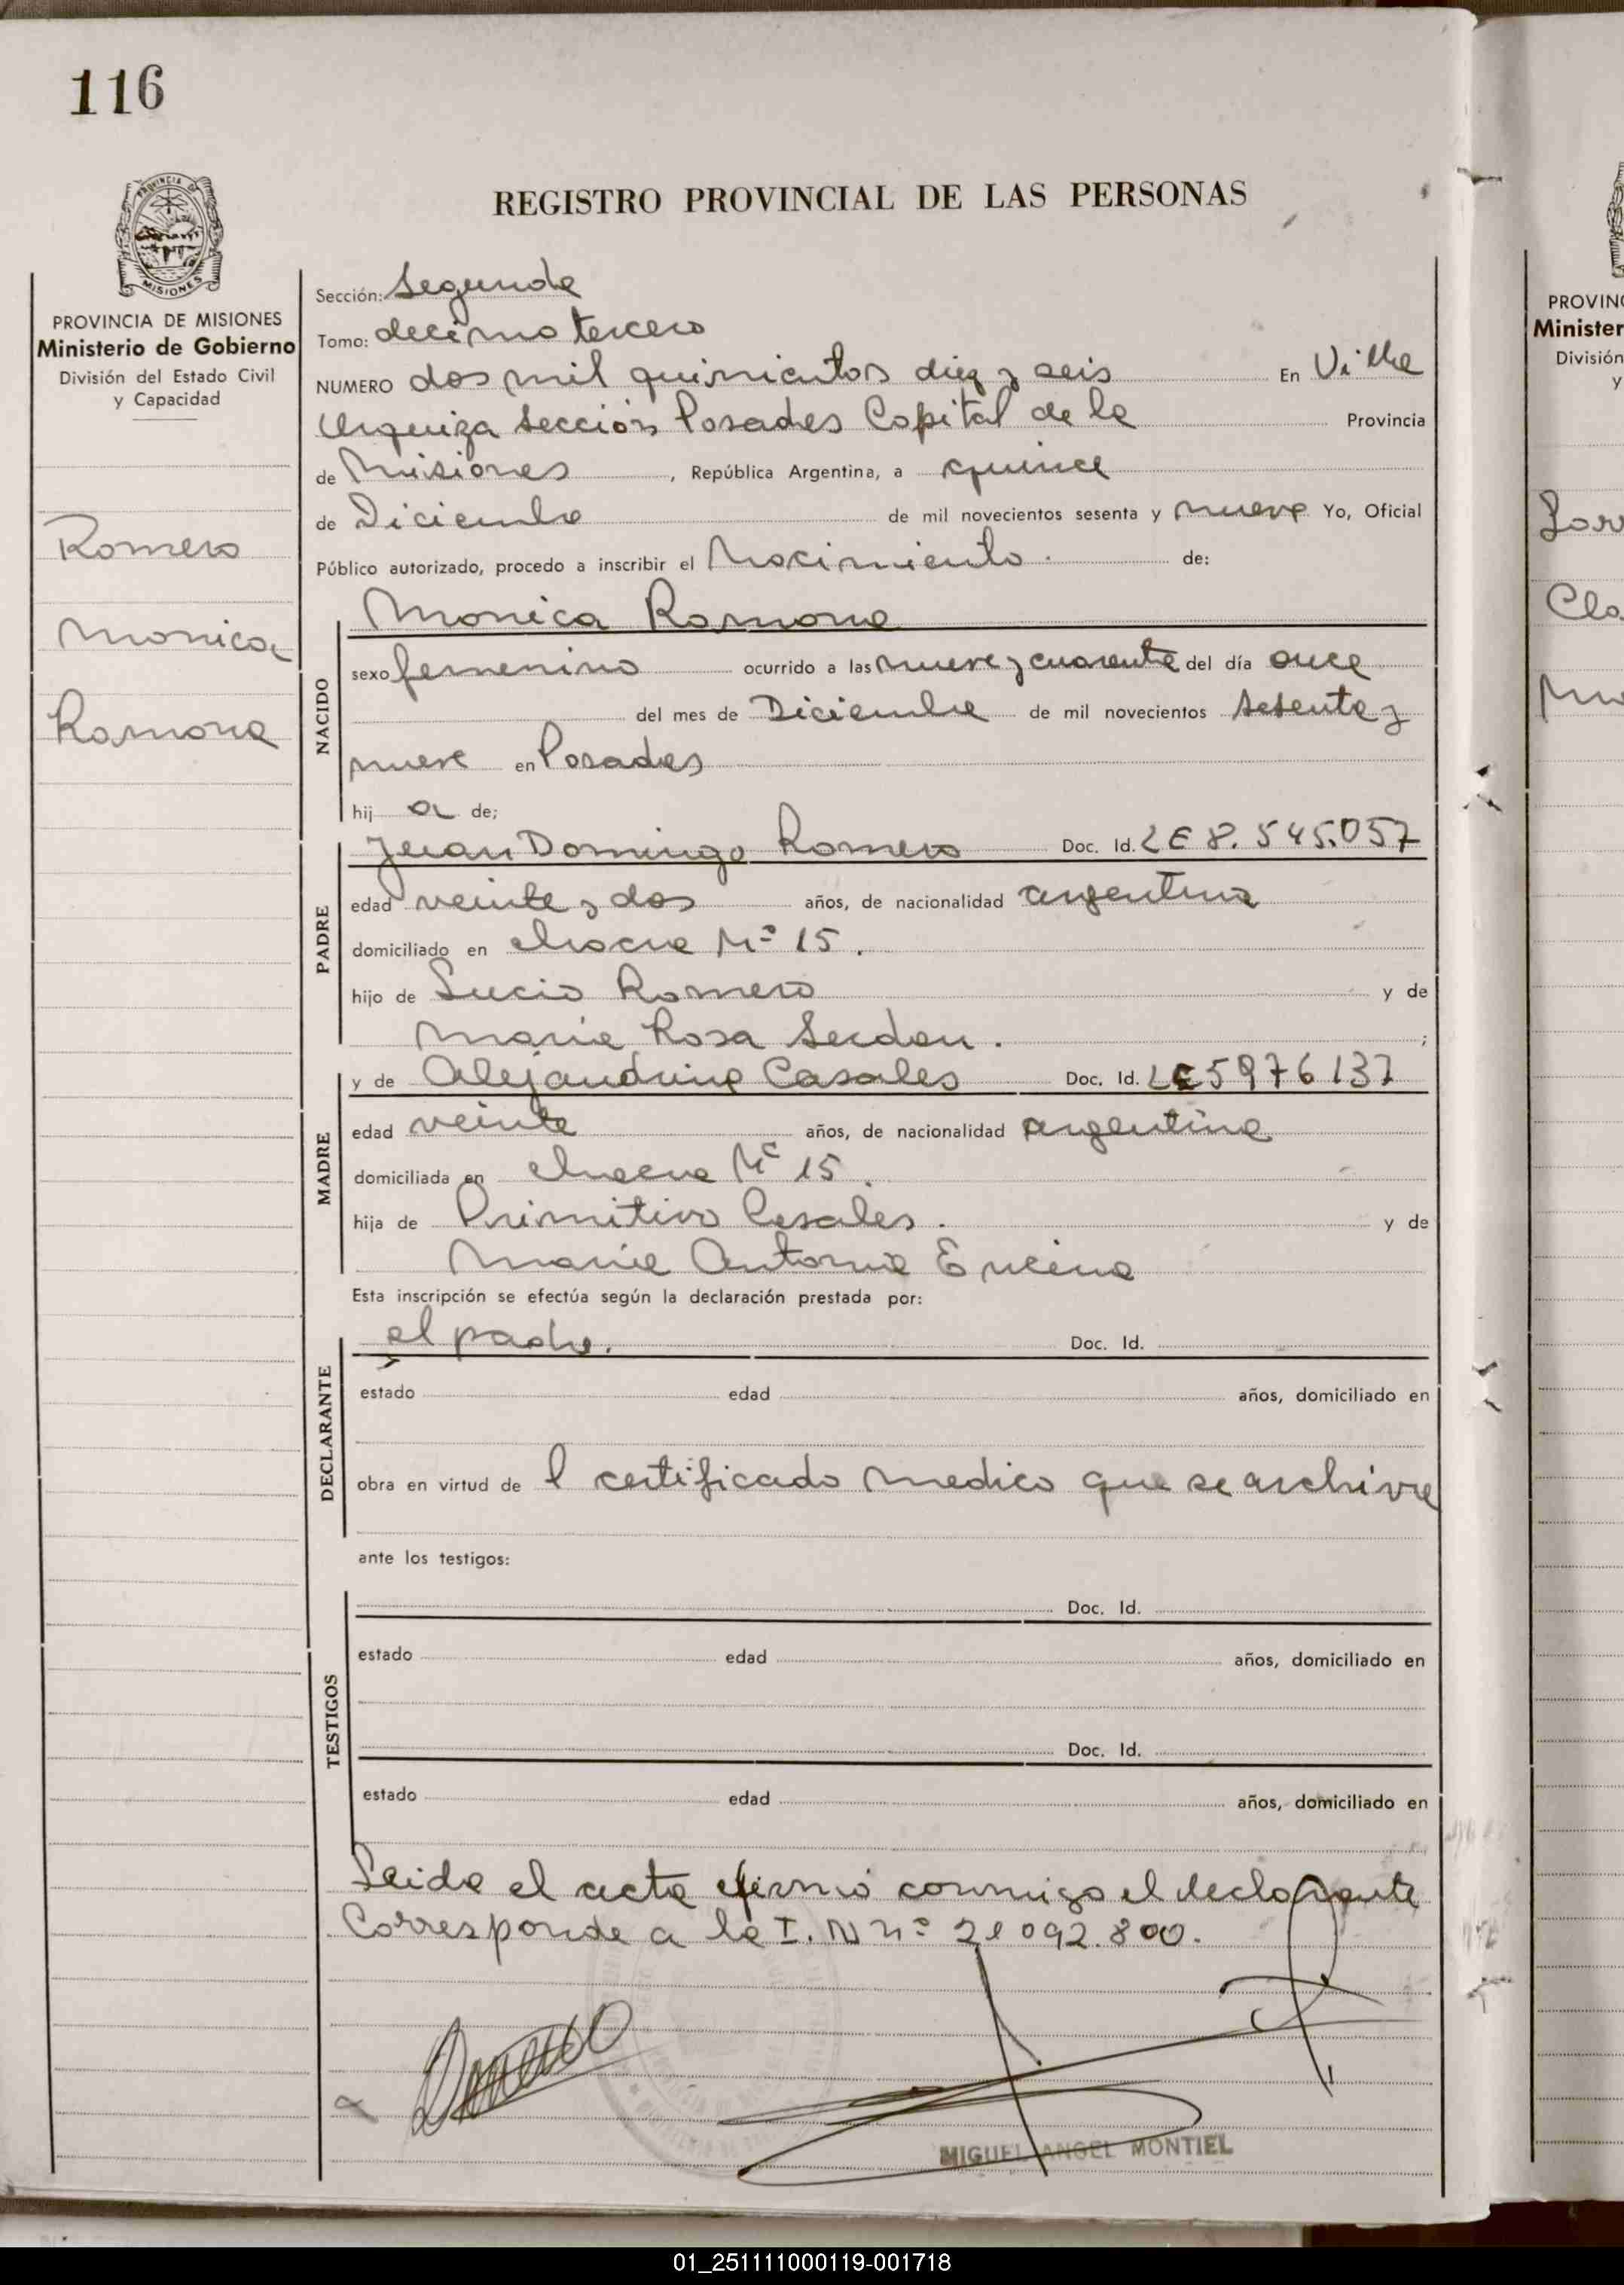 116
REGISTRO PROVINCIAL DE LAS PERSONAS
MISIONES
PROVINCIA DE MISIONES
Ministerio de Gobierno
División del Estado Civil
y Capacidad
Romero
Monica
Ramona
Sección: Segunda
Tomo: decimo tercero
NUMERO dos mil quinientos diez y seis En Villa
Urquiza Sección Posadas Capital de la Provincia
de Misiones, República Argentina, a quince
de Diciembre de mil novecientos sesenta y nueve Yo, Oficial
Público autorizado, procedo a inscribir el Nacimiento de:
NACIDO
Monica Ramona
sexo femenino ocurrido a las nueve y cuarenta del día once
del mes de Diciembre de mil novecientos sesenta y
nueve en Posadas
hij a de;
PADRE
Juan Domingo Romero Doc. Id. LE 8.545.057
edad veinte y dos años, de nacionalidad argentina
domiciliado en chacra Nº 15.
hijo de Lucio Romero y de
Maria Rosa ;
MADRE
y de Alejandrina Casales Doc. Id. 5976137
edad veinte años, de nacionalidad argentina
domiciliada en chacra Nº 15.
hija de Primitivo Casales. y de
Maria Antonia Encina
Esta inscripción se efectúa según la declaración prestada por:
DECLARANTE
el padre. Doc. Id.
estado edad años, domiciliado en
obra en virtud de l certificado medico que se archiva
ante los testigos:
TESTIGOS
Doc. Id.
estado edad años, domiciliado en
Doc. Id.
estado edad años, domiciliado en
Leida el acta firmó conmigo el declarante
Corresponde a la I. N nº 21092.800.
MIGUEL ANGEL MONTIEL
PROVINC
Minister
División
y
Cla
01_251111000119-001718